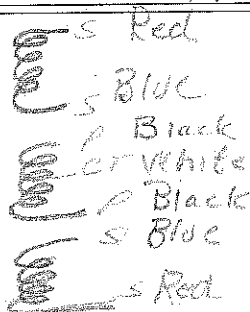 s Red
s Blue
p Black
cr White
p Black
s Blue
s Red